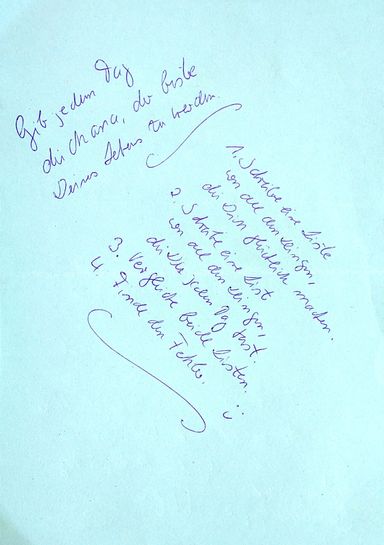 Gib jedem Tag
die Chance, der beste
Deines Lebens zu werden.
1. Schreibe eine Liste
von all den Dingen,
die Dich glücklich machen.
2. Schreibe eine List
von all den Dingen,
die Du jeden Tag tust.
3. Vergleiche beide Listen.
4. Finde den Fehler.
:)